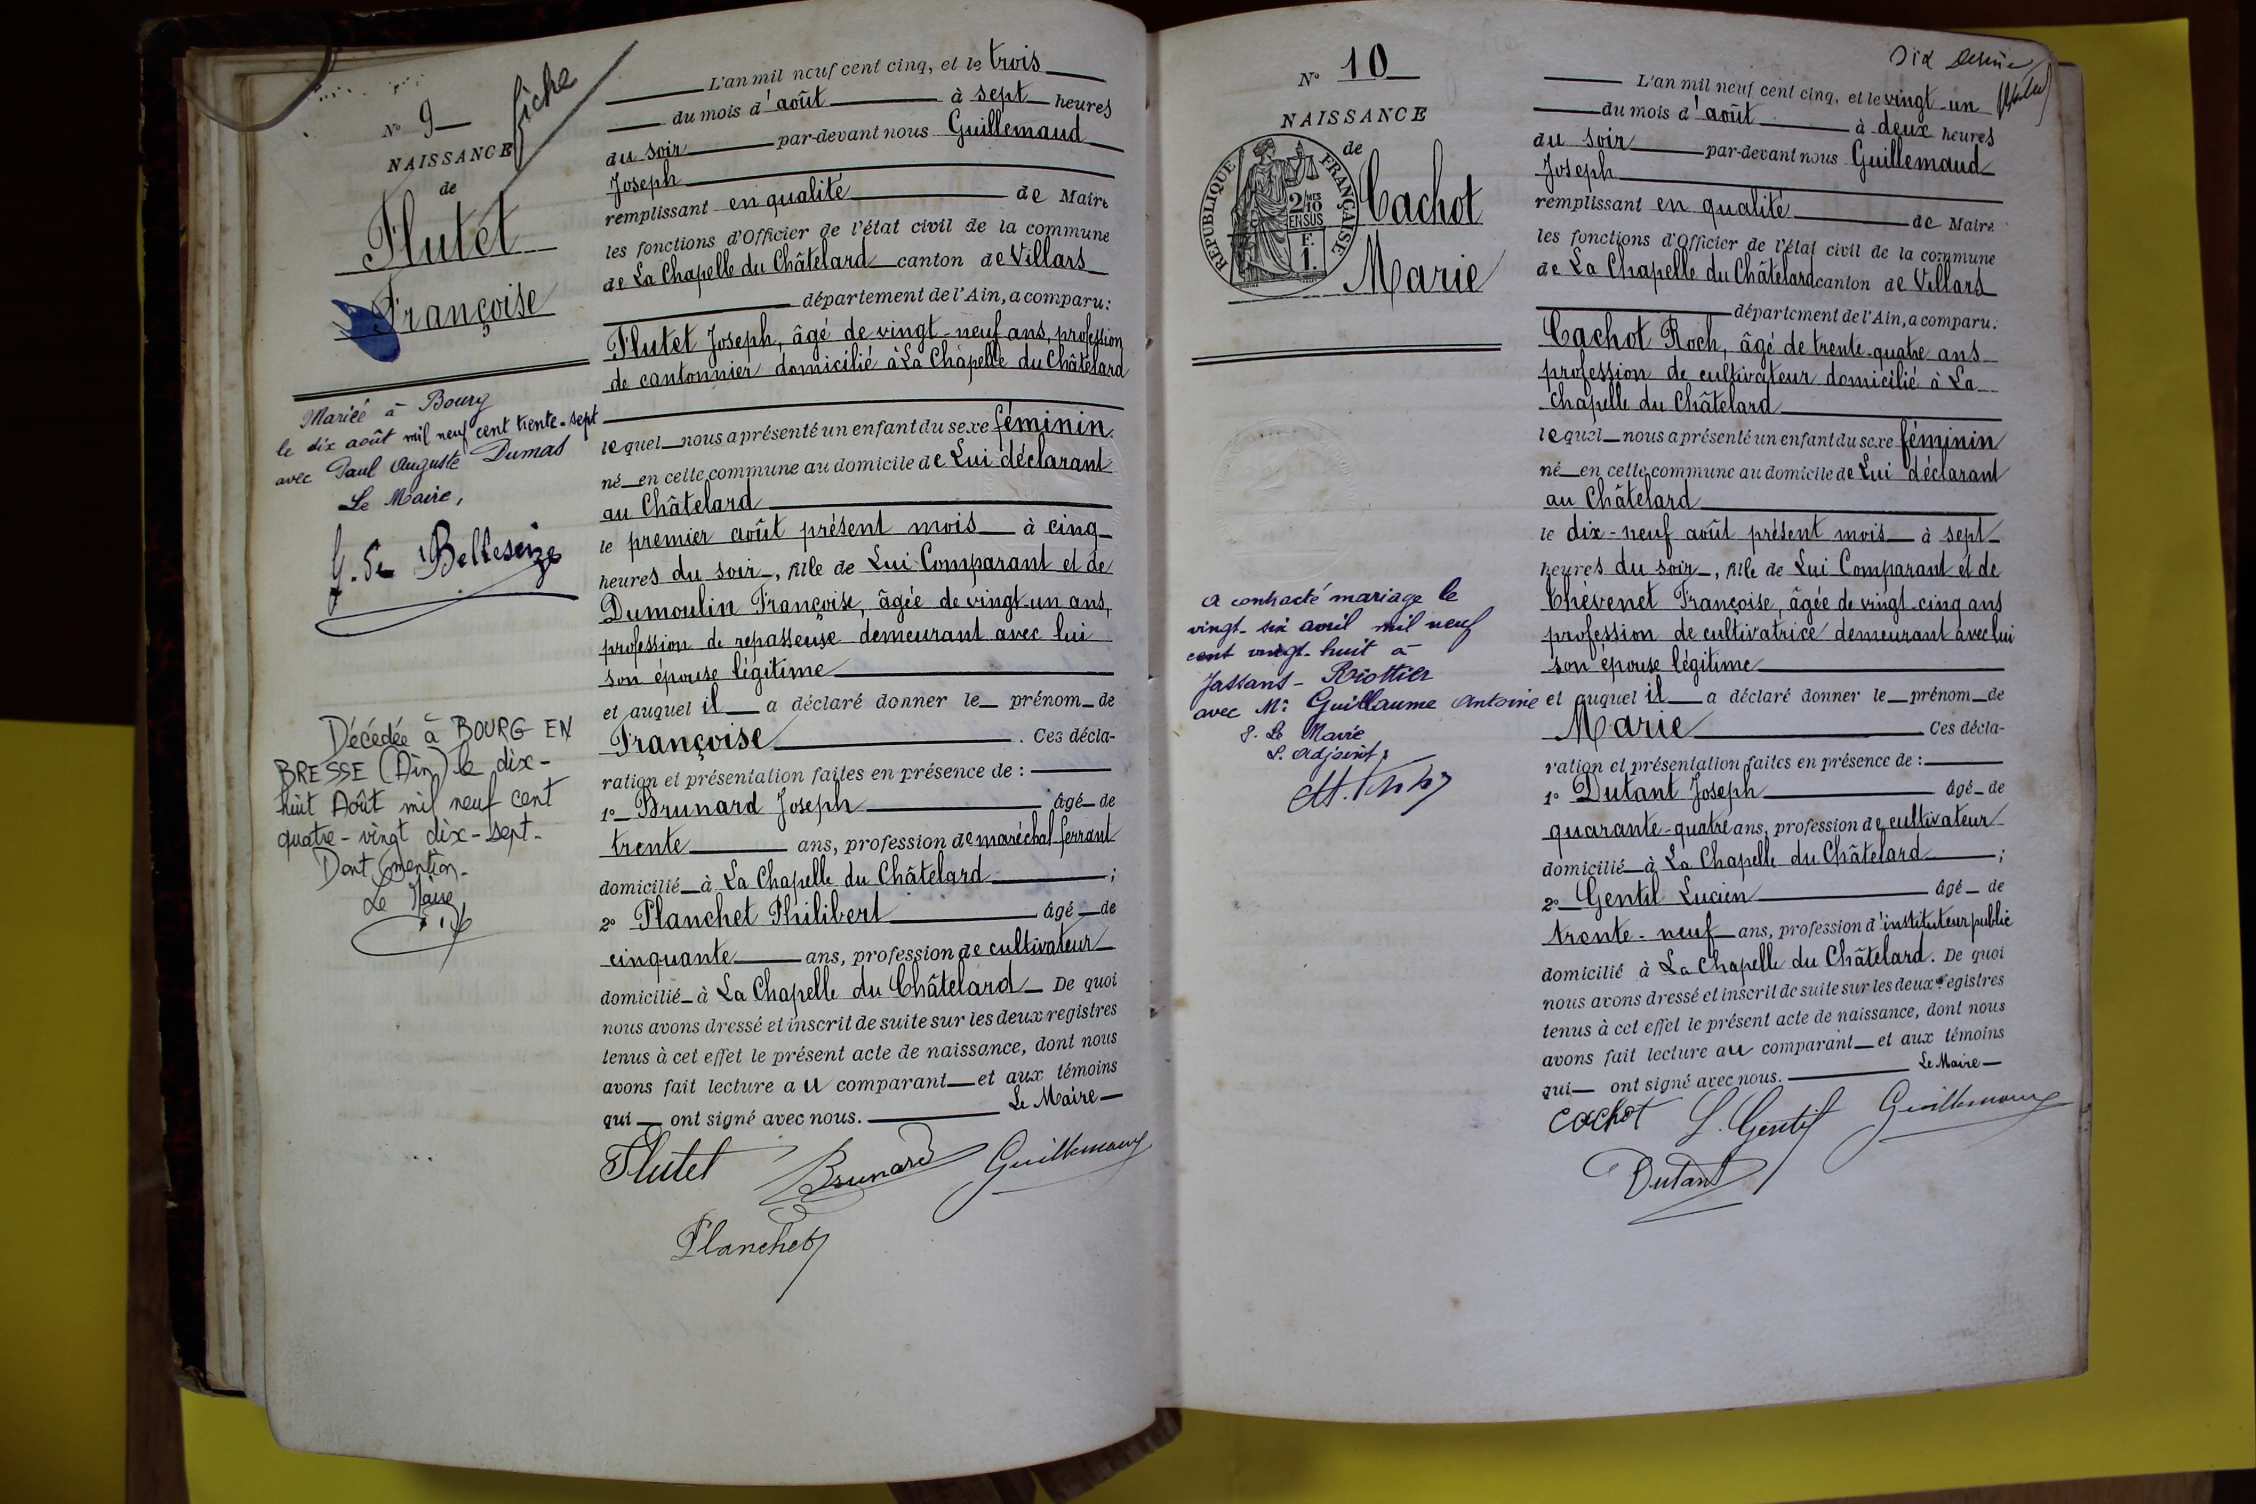 fiche
N° 9
NAISSANCE
de
Flutet
Françoise
Mariée à Bourg
le dix août mil neuf cent trente-sept
avec Paul Auguste Dumas
Le Maire,
G. de Bellescize
Décédée à BOURG EN
BRESSE (Ain) le dix-
huit Août mil neuf cent
quatre-vingt dix-sept-
Dont mention-
Le Maire
L'an mil neuf cent cinq, et le trois
du mois d'août à sept heures
du soir par-devant nous Guillemaud
Joseph
remplissant en qualité de Maire
les fonctions d'Officier de l'état civil de la commune
de La Chapelle du Châtelard canton de Villars
département de l'Ain, a comparu:
Flutet Joseph, âgé de vingt-neuf ans, profession
de cantonnier domicilié à La Chapelle du Châtelard
lequel nous a présenté un enfant du sexe féminin.
né en cette commune au domicile de Lui déclarant
au Châtelard
le premier août présent mois à cinq
heures du soir, fille de Lui Comparant et de
Dumoulin Françoise, âgée de vingt-un ans,
profession de repasseuse demeurant avec lui
son épouse légitime
et auquel il a déclaré donner le prénom de
Françoise. Ces décla-
ration et présentation faites en présence de :
1° Brunard Joseph âgé de
trente ans, profession de maréchal-ferrant
domicilié à La Chapelle du Châtelard ;
2° Planchet Philibert âgé de
cinquante ans, profession de cultivateur
domicilié à La Chapelle du Châtelard De quoi
nous avons dressé et inscrit de suite sur les deux registres
tenus à cet effet le présent acte de naissance, dont nous
avons fait lecture au comparant et aux témoins
qui ont signé avec nous. Le Maire
Flutet Brunard Guillemaud
Planchet
N° 10
NAISSANCE
de
Cachot
Marie
REPUBLIQUE FRANÇAISE
2/10
EN SUS
F.
1.
A contracté mariage le
vingt-six avril mil neuf
cent vingt-huit à
Jassans-Riottier
avec Mr Guillaume Antoine
P. Le Maire
L'Adjoint:
L'an mil neuf cent cinq, et le vingt-un
du mois d'août à deux heures
du soir par-devant nous Guillemaud
Joseph
remplissant en qualité de Maire
les fonctions d'Officier de l'état civil de la commune
de La Chapelle du Châtelard canton de Villars
département de l'Ain, a comparu:
Cachot Roch, âgé de trente-quatre ans
profession de cultivateur domicilié à La
Chapelle du Châtelard
lequel nous a présenté un enfant du sexe féminin
né en cette commune au domicile de Lui déclarant
au Châtelard
le dix-neuf août présent mois à sept
heures du soir, fille de Lui Comparant et de
Chevenet Françoise, âgée de vingt-cinq ans
profession de cultivatrice demeurant avec lui
son épouse légitime
et auquel il a déclaré donner le prénom de
Marie Ces décla-
ration et présentation faites en présence de :
1° Dutant Joseph âgé de
quarante-quatre ans, profession de cultivateur
domicilié à La Chapelle du Châtelard ;
2° Gentil Lucien âgé de
trente-neuf ans, profession d'instituteur public
domicilié à La Chapelle du Châtelard. De quoi
nous avons dressé et inscrit de suite sur les deux registres
tenus à cet effet le présent acte de naissance, dont nous
avons fait lecture au comparant et aux témoins
qui ont signé avec nous. Le Maire
Cachot L. Gentil Guillemaud
Dutant